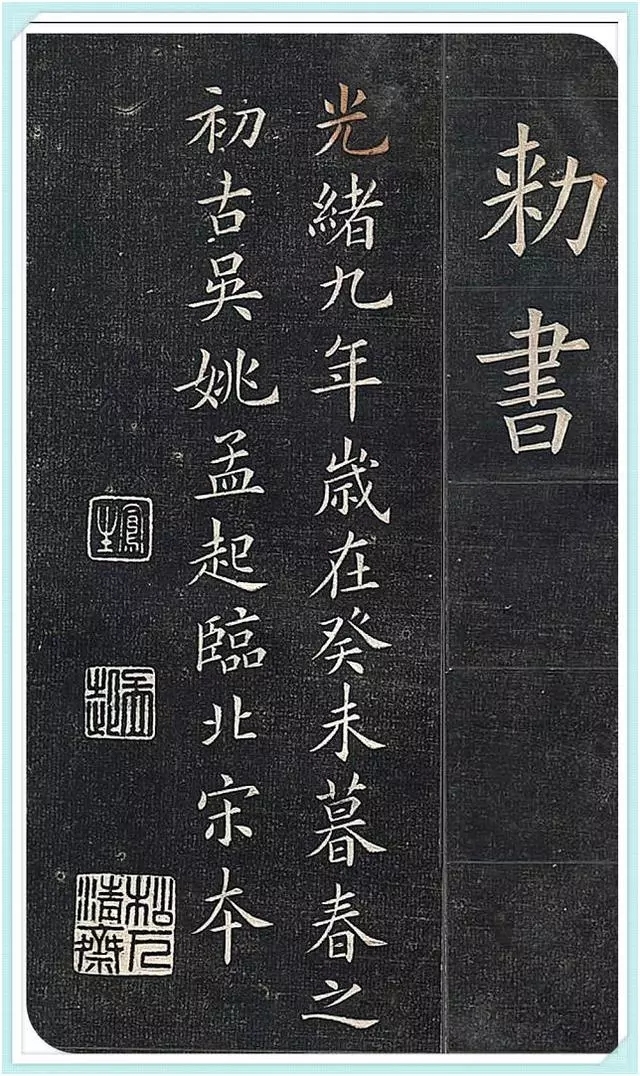 勑書
光緒九年歳在癸未暮春之
初古吳姚孟起臨北宋本
鳳生
孟起
松下清齋